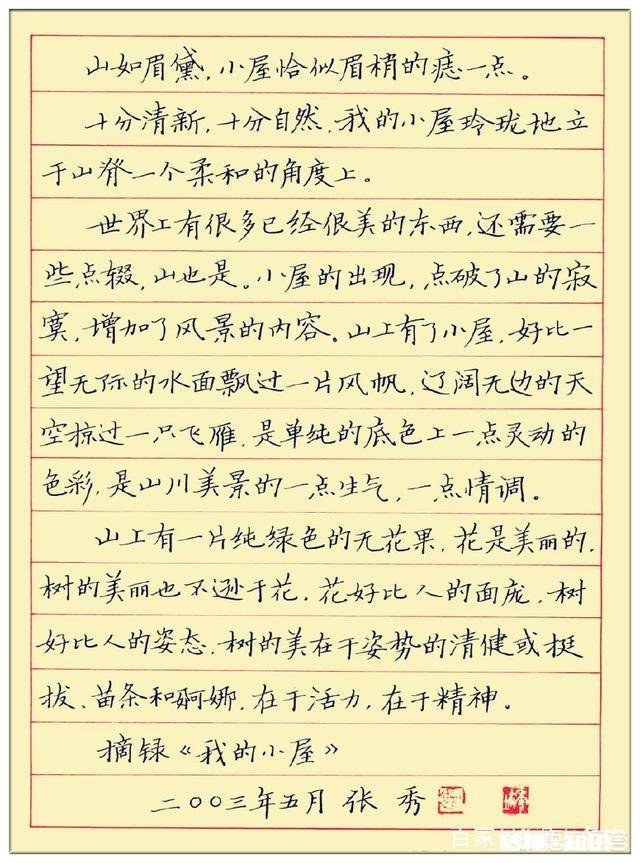 山如眉黛,小屋恰似眉梢的痣一点。
十分清新,十分自然,我的小屋玲珑地立
于山脊一个柔和的角度上。
世界上有很多已经很美的东西,还需要一
些点缀,山也是。小屋的出现,点破了山的寂
寞,增加了风景的内容。山上有了小屋,好比一
望无际的水面飘过一片风帆,辽阔无边的天
空掠过一只飞雁,是单纯的底色上一点灵动的
色彩,是山川美景的一点生气,一点情调。
山上有一片纯绿色的无花果,花是美丽的,
树的美丽也不逊于花。花好比人的面庞,树
好比人的姿态,树的美在于姿势的清健或挺
拔、苗条和婀娜,在于活力,在于精神。
摘录《我的小屋》
二〇〇三年五月 张秀